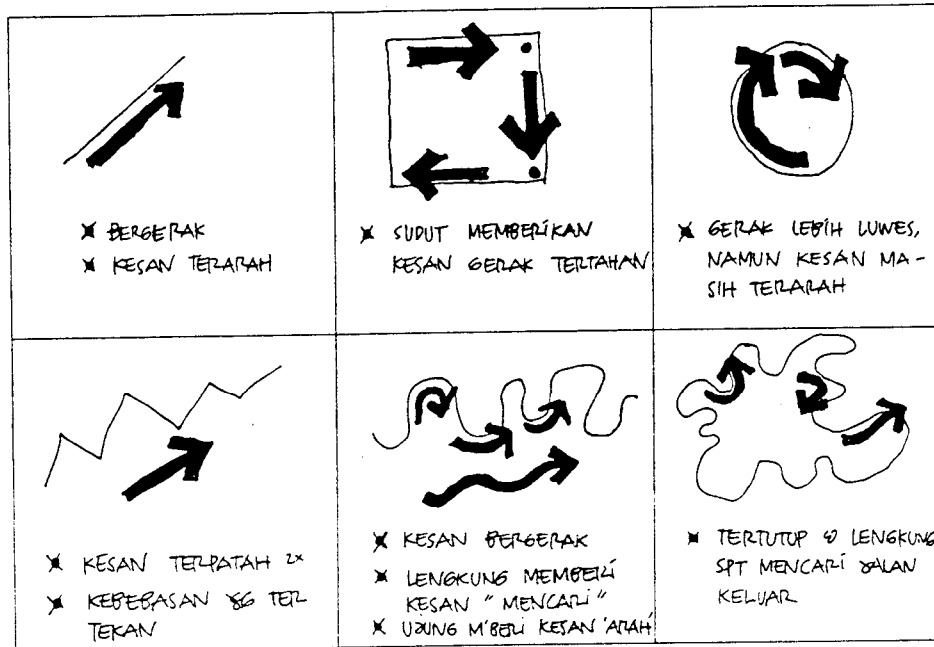 BERGERAK
KESAN TERARAH
SUDUT MEMBERIKAN
KESAN GERAK TERTAHAN
GERAK LEBIH LUWES,
NAMUN KESAN MA-
SIH TERARAH
KESAN TERPATAH 2x
KEBEBASAN YG TER
TEKAN
KESAN BERGERAK
LENGKUNG MEMBERI
KESAN "MENCARI"
UJUNG M'BERI KESAN 'ARAH'
TERTUTUP & LENGKUNG
SPT MENCARI JALAN
KELUAR